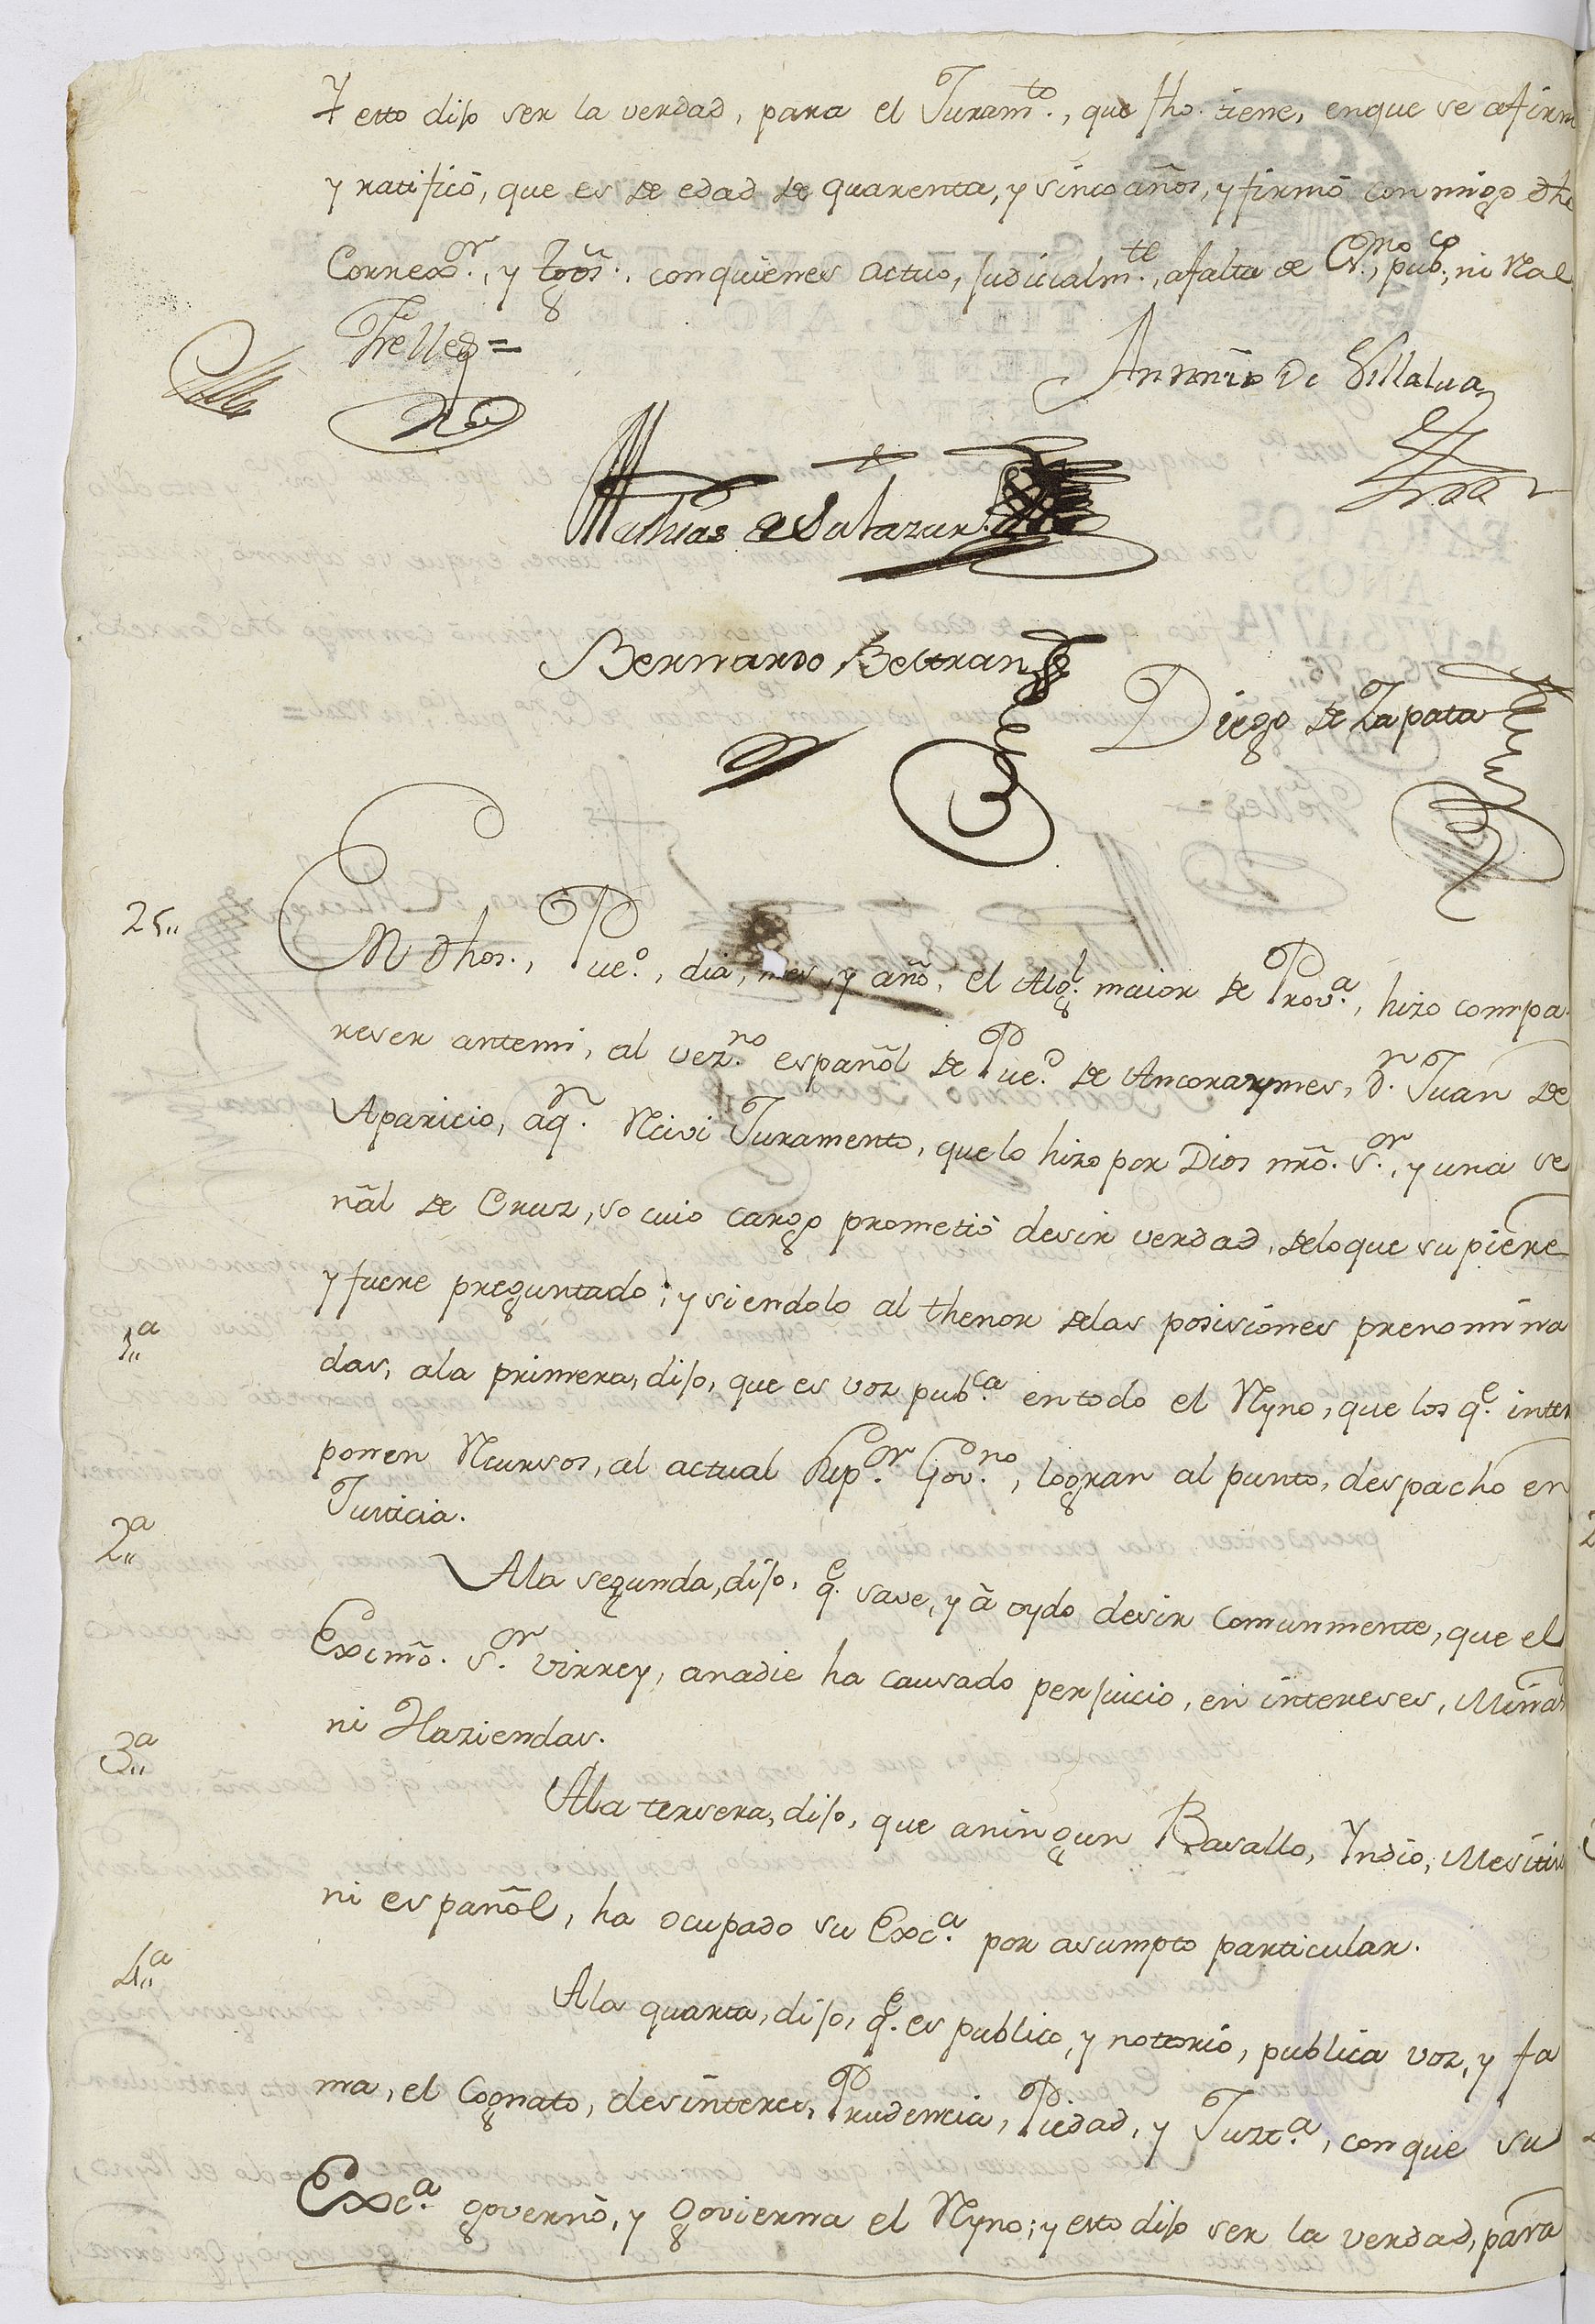 Y esto dijo ser la verdad, para el Juram.to, que fho. tiene, enque se afirm
y ratificó, que es de edad de quarenta, y sinco años, y firmó con migo dho
Correxor., y tgōs., conquienes actuo, judicialm.te, afalta de Es.no, pub.co, ni Ral
Trelles=
Antonio De Villalva
Mathias de Salazar
Bernardo Beltran
Diego de Zapata
25,,
En dhos., Pue.o, dia, mes, y año, el Alg.l maior de Prov.a, hizo compa
reser antemi, al vez.no español de Pue.o de Ancoraymes, d.n Juan de
Aparicio, aq.n Rcivi Juramento, quelo hizo por Dios nrō. s.or, y una se
ñal de Cruz, so cuio cargo prometió desir verdad, deloque supiere
y fuere preguntado; y siendolo al thenor delas posisiones prenomina
1,,a
das, ala primera, dijo, que es voz pub.ca entodo el Ryno, que los q.e inter
ponen Rcursos, al actual Sup.or Gov.no, logran al punto, despacho en
Justicia.
2,,a
Ala segunda, dijo, q.e save, y ã oydo desir comunmente, que el
Excmō. s.or virrey, anadie ha causado perjuicio, en intereses, Minas
ni Haziendas.
3,,a
Ala tersera, dijo, que aningun Basallo, Yndio, Mesitiso
ni español, ha ocupado su Exc.a por asumpto particular.
4,,a
Ala quarta, dijo, q.e es publico, y notorio, publica voz, y fa
ma, el Cognato, desinteres, Prudencia, Piedad, y Just.a, conque su
Exc.a governò, y govierna el Ryno; y esto dijo ser la verdad, para